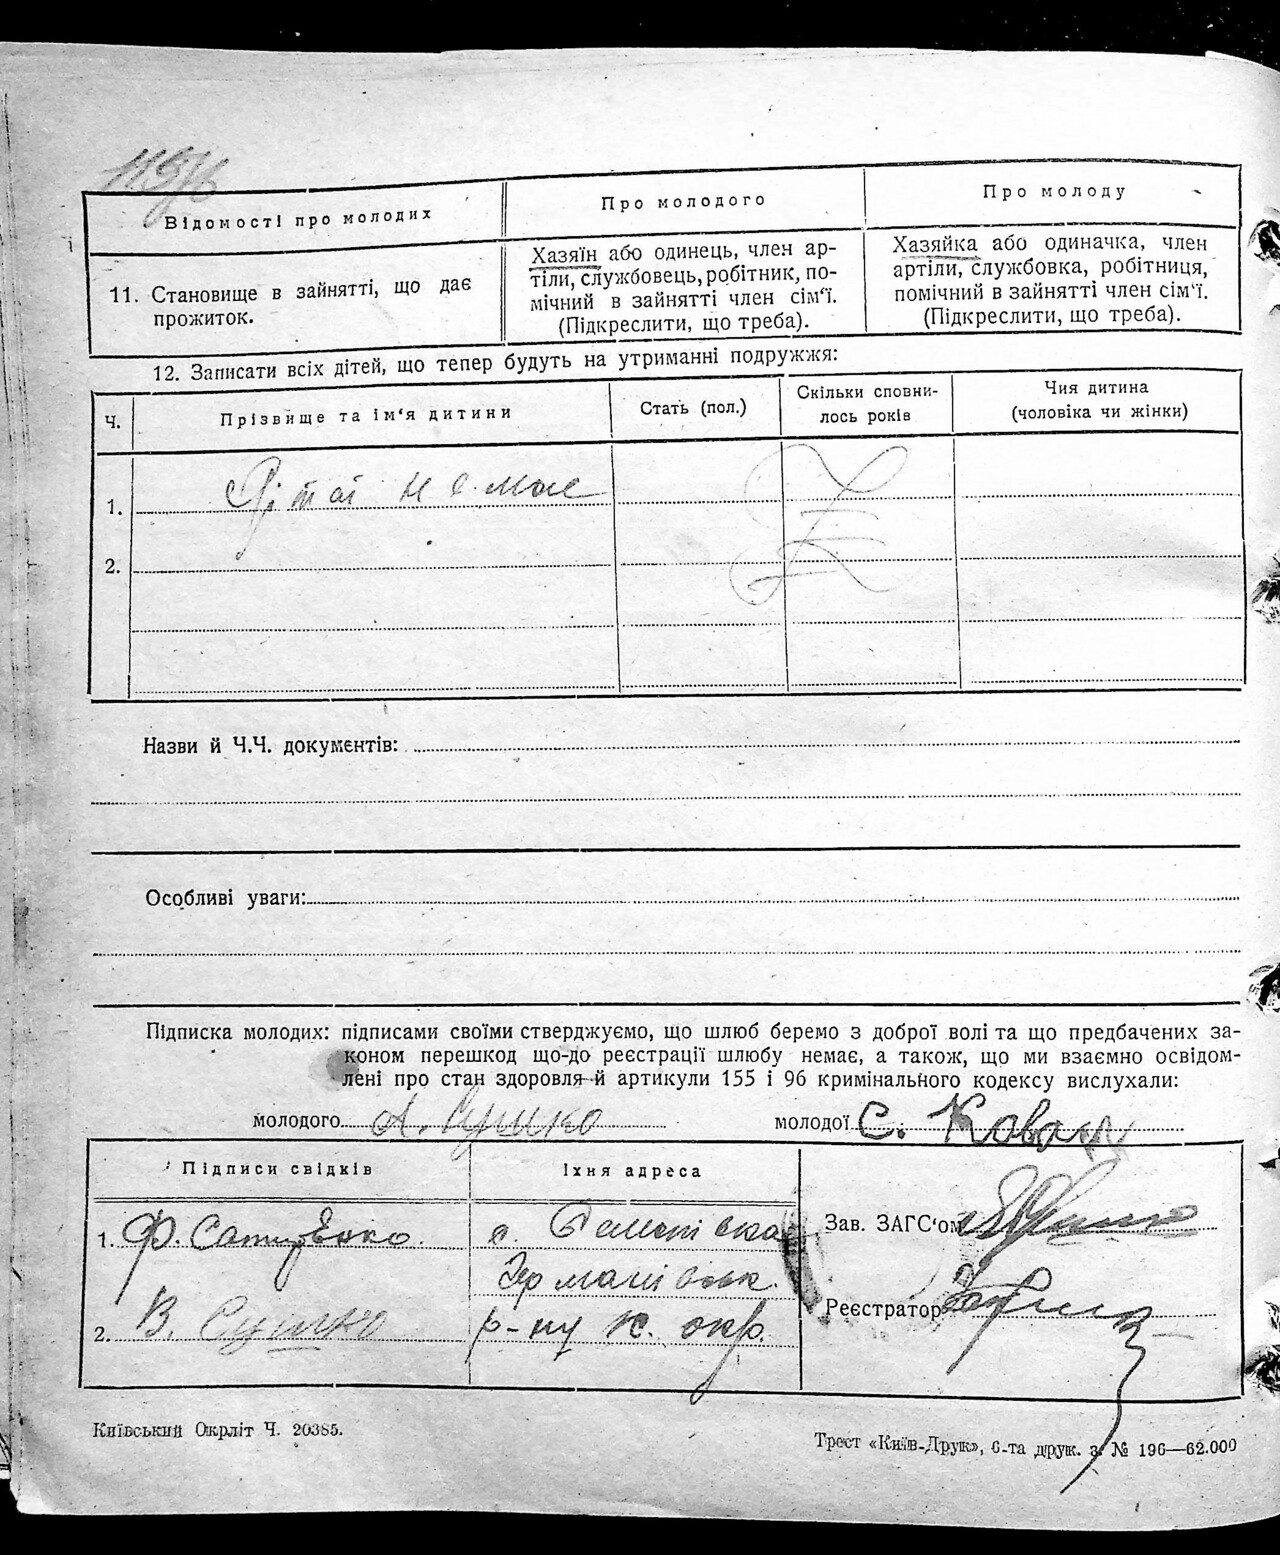 Відомості про молодих
Про молодого
Про молоду
11. Становище в зайнятті, що дає
прожиток.
Хазяїн або одинець, член ар-
тіли, службовець, робітник, по-
мічний в зайнятті член сім'ї.
(Підкреслити, що треба).
Хазяйка або одиначка, член
артіли, службовка, робітниця,
помічний в зайнятті член сім'ї.
(Підкреслити, що треба).
12. Записати всіх дітей, що тепер будуть на утриманні подружжя:
Ч.
Прізвище та ім'я дитини
Стать (пол.)
Скільки сповни-
лось років
Чия дитина
(чоловіка чи жінки)
1. Дітей немає
2.
Назви й Ч.Ч. документів:
Особливі уваги:
Підписка молодих: підписами своїми стверджуємо, що шлюб беремо з доброї волі та що предбачених за-
коном перешкод що-до реєстрації шлюбу немає, а також, що ми взаємно освідом-
лені про стан здоровля й артикули 155 і 96 кримінального кодексу вислухали:
молодого А. Сушко
молодої С. Коваль
Підписи свідків
Їхня адреса
1. Ф.
с.
2. В. Сушко
р-ну К. окр.
Зав. ЗАГС'ом
Реєстратор
Київський Окрліт Ч. 20385.
Трест «Київ-Друк», 6-та друк. з. № 196—62.000